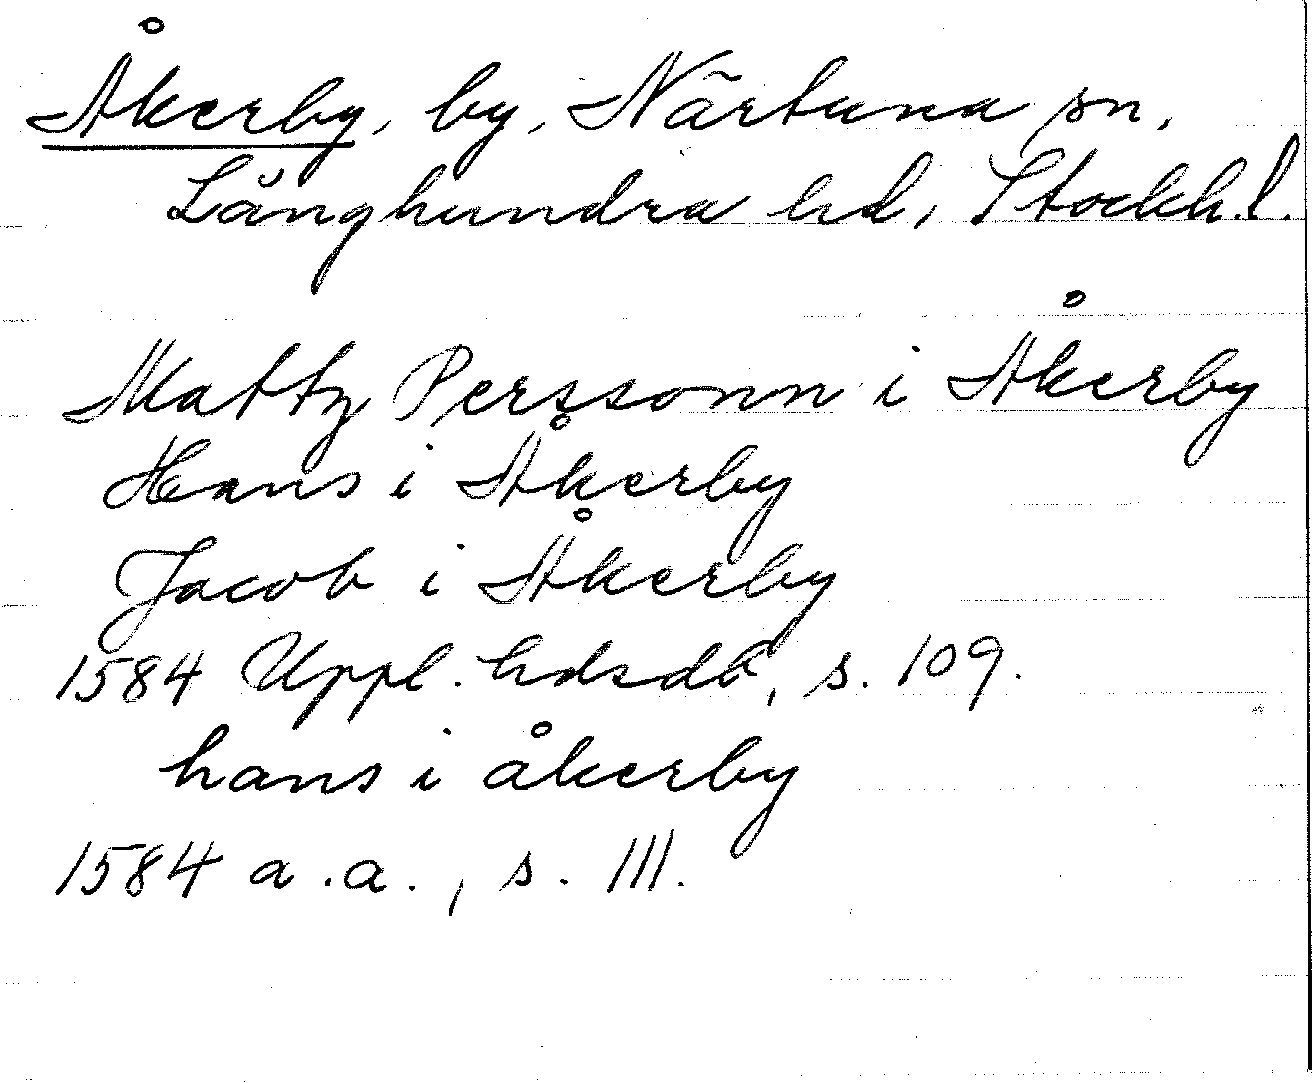 Åkerby, by, Närtuna sn,
Långhundra hd, Stockh. l.
Mattz Perssonn i Åkerby
Hans i Åkerby
Jacob i Åkerby
1584 Uppl. hdsdb, s. 109.
hans i åkerby
1584 a.a., s. 111.